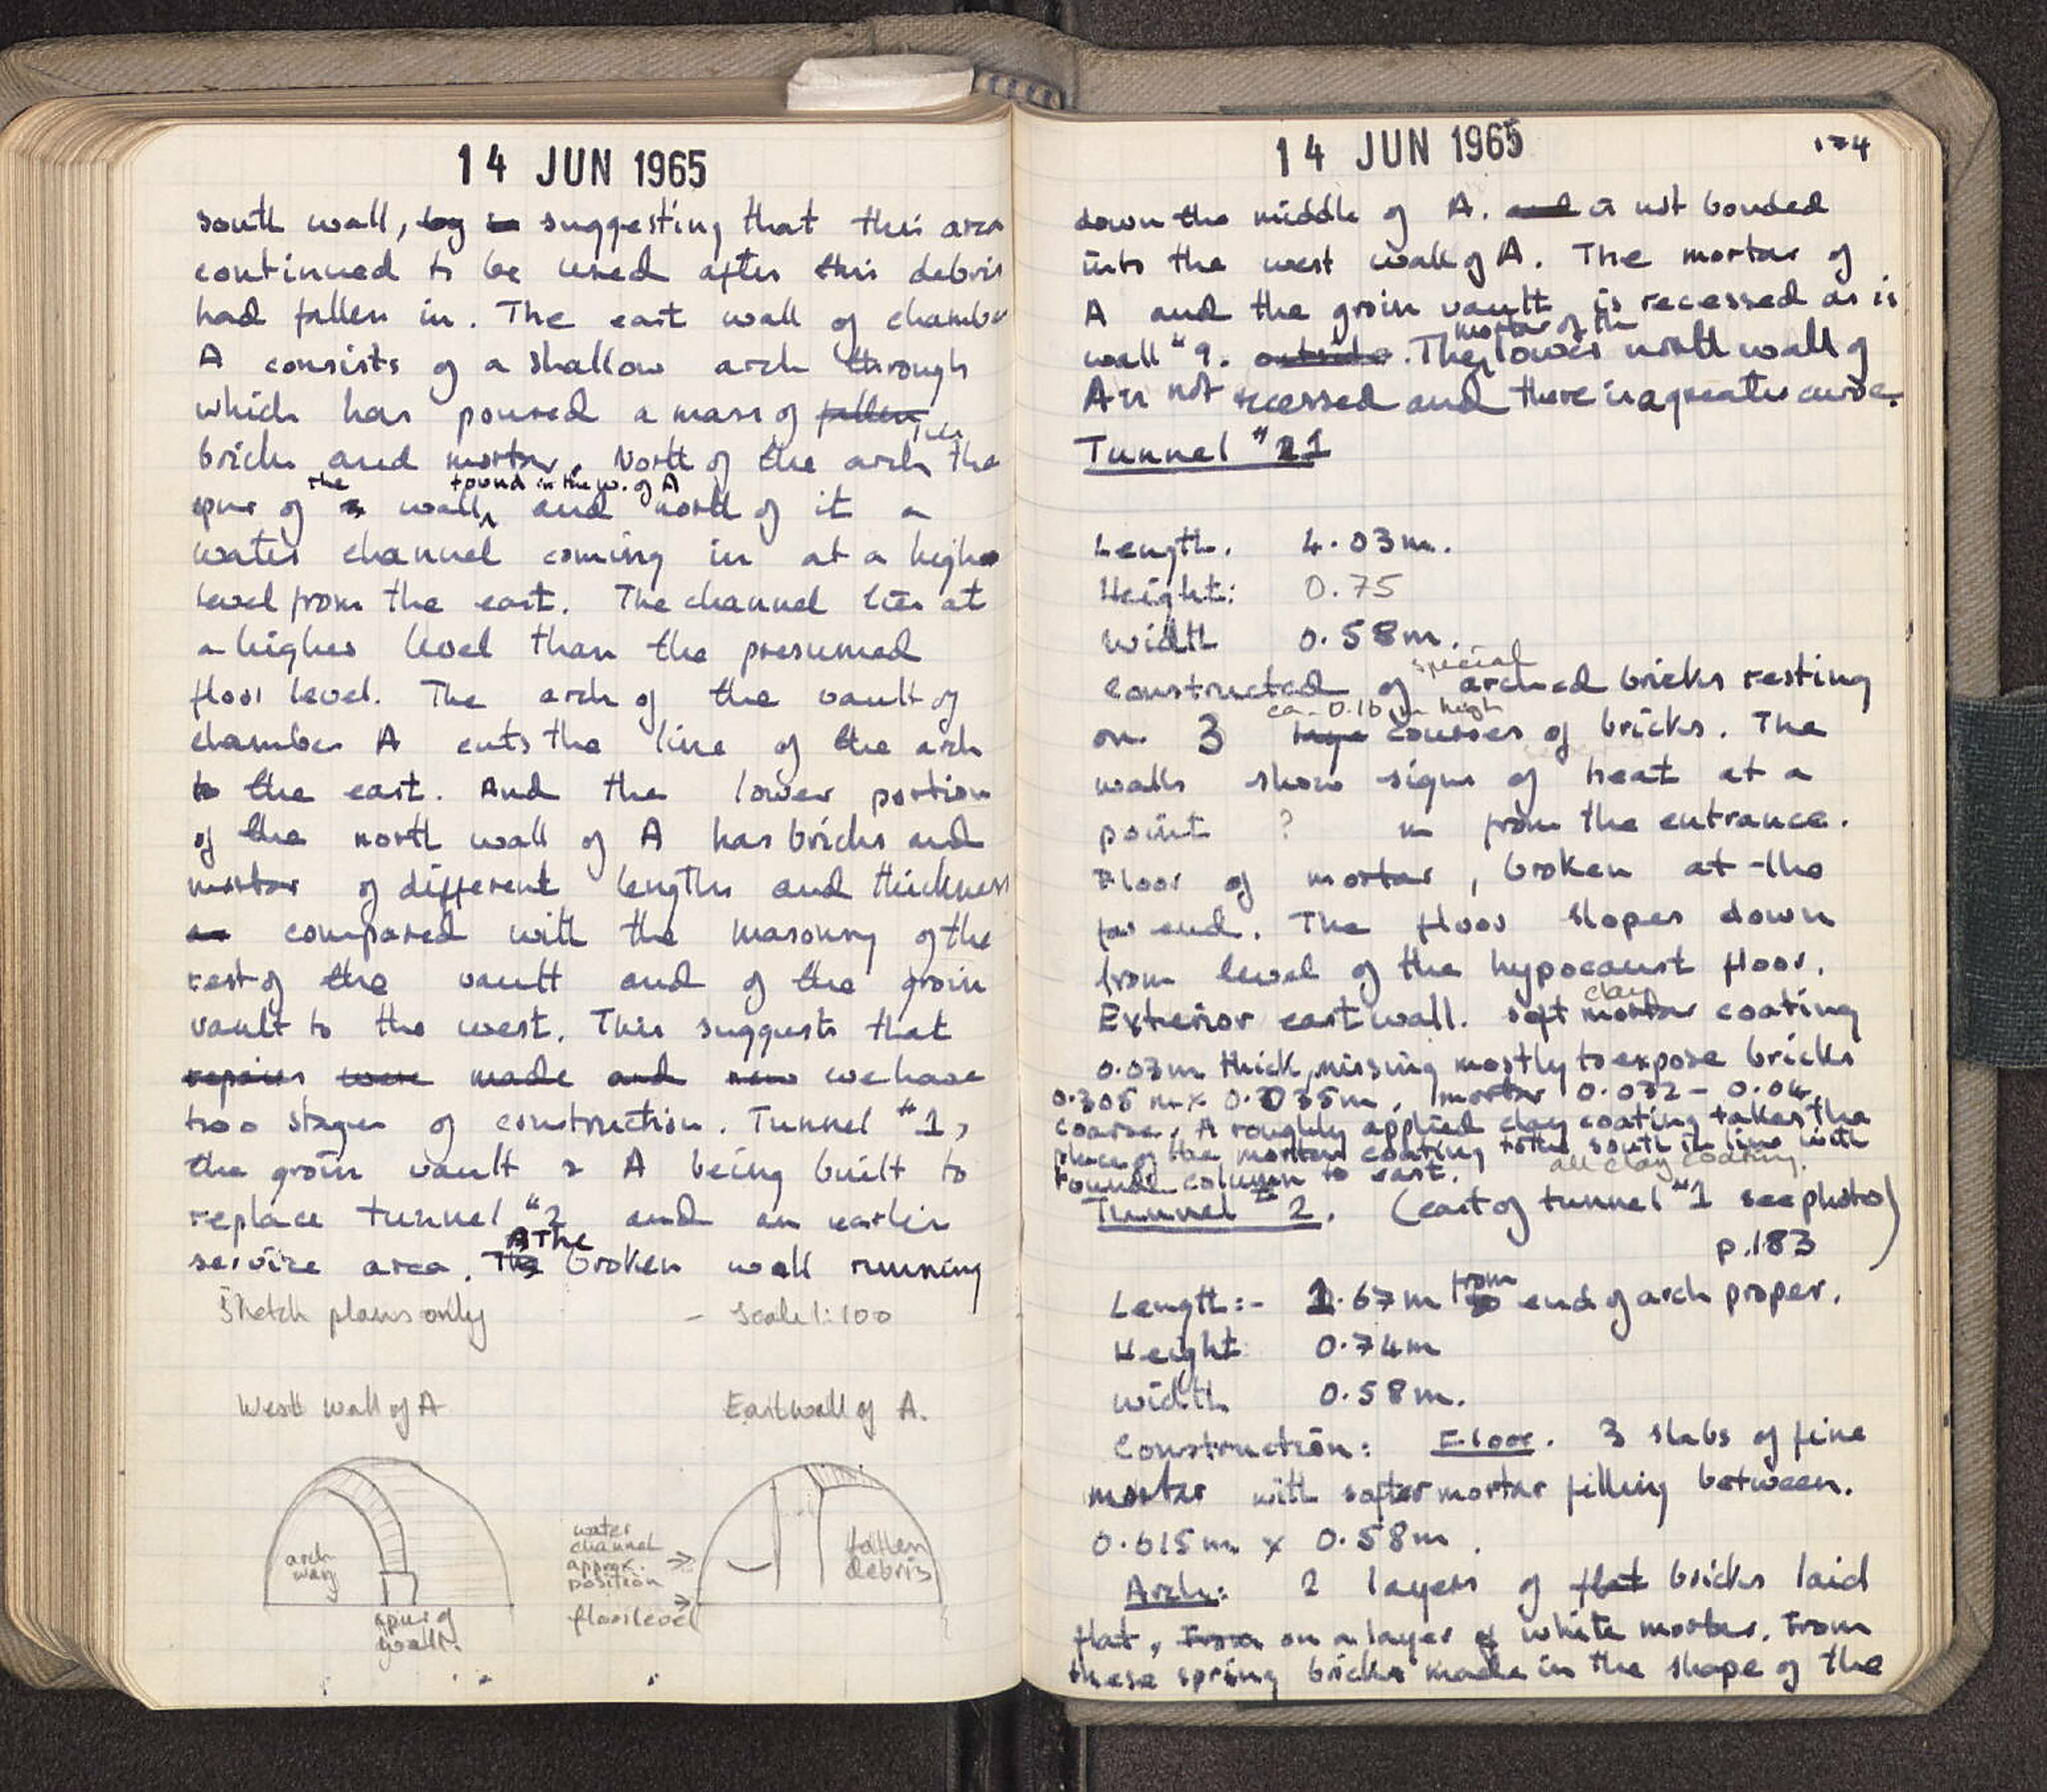 14 JUN 1965
south wall, suggesting that this area
continued to be used after this debris
had fallen in. The east wall of chamber
A consists of a shallow arch through
which has poured a mass of fallen
bricks and mortar. North of the arch the
the found in the w. of A
spur of wall, and north of it a
water channel coming in at a higher
level from the east. The channel lies at
a higher level than the presumed
floor level. The arch of the vault of
chamber A cuts the line of the arch
to the east. And the lower portion
of the north wall of A has bricks and
mortar of different lengths and thickness
as compared with the masonry of the
rest of the vault and of the groin
vault to the west. This suggests that
repairs were made and new we have
two stages of construction. Tunnel "1,
the groin vault & A being built to
replace tunnel "2 and an earlier
The
service area. The broken wall running
Sketch plans only - Scale 1:100
West wall of A
East wall of A.
arch
way
spur of
wall.
water
channel
approx.
position
floor level
fallen
debris
14 JUN 1965
174
down the middle of A. and is not bonded
into the west wall of A. The mortar of
A and the groin vault is recessed as is
mortar of the
wall "9. outside. The lower north wall of
A is not recessed and there is a greater curve.
Tunnel "1
Length. 4.03m.
Height: 0.75
Width 0.58m.
special
Constructed of arched bricks resting
ca. 0.10 m high
on 3 large courses of bricks. The
walls show signs of heat at a
point ? m from the entrance.
Floor of mortar, broken at the
far end. The floor slopes down
from level of the hypocaust floor.
clay
Exterior east wall. soft mortar coating
0.03m thick, missing mostly to expose bricks
0.305 m x 0.035m, mortar 0.032 - 0.04,
coarse. A roughly applied clay coating takes the
place of the mortar coating to the south in line with
round column to east. all clay coating.
Tunnel "2. (east of tunnel "1 see photo)
p.183
from
Length:- 1.67m to end of arch proper.
Height 0.74m
Width 0.58m.
Construction: Floor. 3 slabs of fine
mortar with softer mortar filling between.
0.615m x 0.58m.
Arch: 2 layers of flat bricks laid
flat, from on a layer of white mortar. From
these spring bricks made in the shape of the